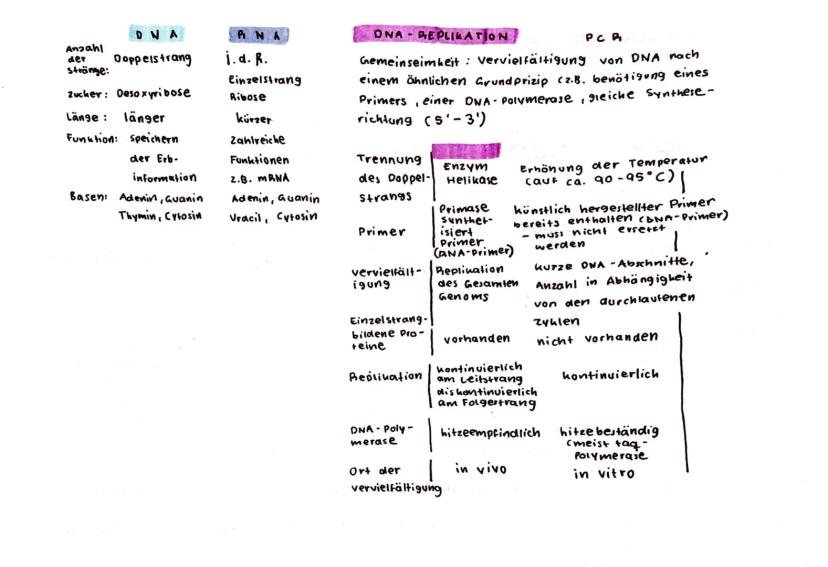 DNA RNA
Anzahl der Stränge: Doppelstrang i.d.R. Einzelstrang
Zucker: Desoxyribose Ribose
Länge: länger kürzer
Funktion: speichern der Erb-information Zahlreiche Funktionen z.B. mRNA
Basen: Adenin, Guanin Adenin, Guanin
Thymin, Cytosin Uracil, Cytosin
DNA-REPLIKATION PCR
Gemeinseimkeit: Vervielfältigung von DNA nach
einem ähnlichen Grundprinzip (z.B. benötigung eines
Primers, einer DNA-Polymerase, gleiche Synthese-
richtung (5'-3')
Trennung des Doppel-strangs Enzym Helikase Erhöhung der Temperatur (auf ca. 90-95°C)
Primer Primase synthet-isiert Primer (RNA-Primer) künstlich hergestellter Primer bereits enthalten (DNA-Primer) - muss nicht ersetzt werden
vervielfält-igung Replikation des Gesamten Genoms kurze DNA-Abschnitte, Anzahl in Abhängigkeit von den durchlaufenen Zyklen
Einzelstrang-bildene Pro-teine vorhanden nicht vorhanden
Replikation kontinuierlich am Leitstrang diskontinuierlich am Folgestrang kontinuierlich
DNA-Poly-merase hitzeempfindlich hitzebeständig (meist taq-Polymerase
Ort der vervielfältigung in vivo in vitro